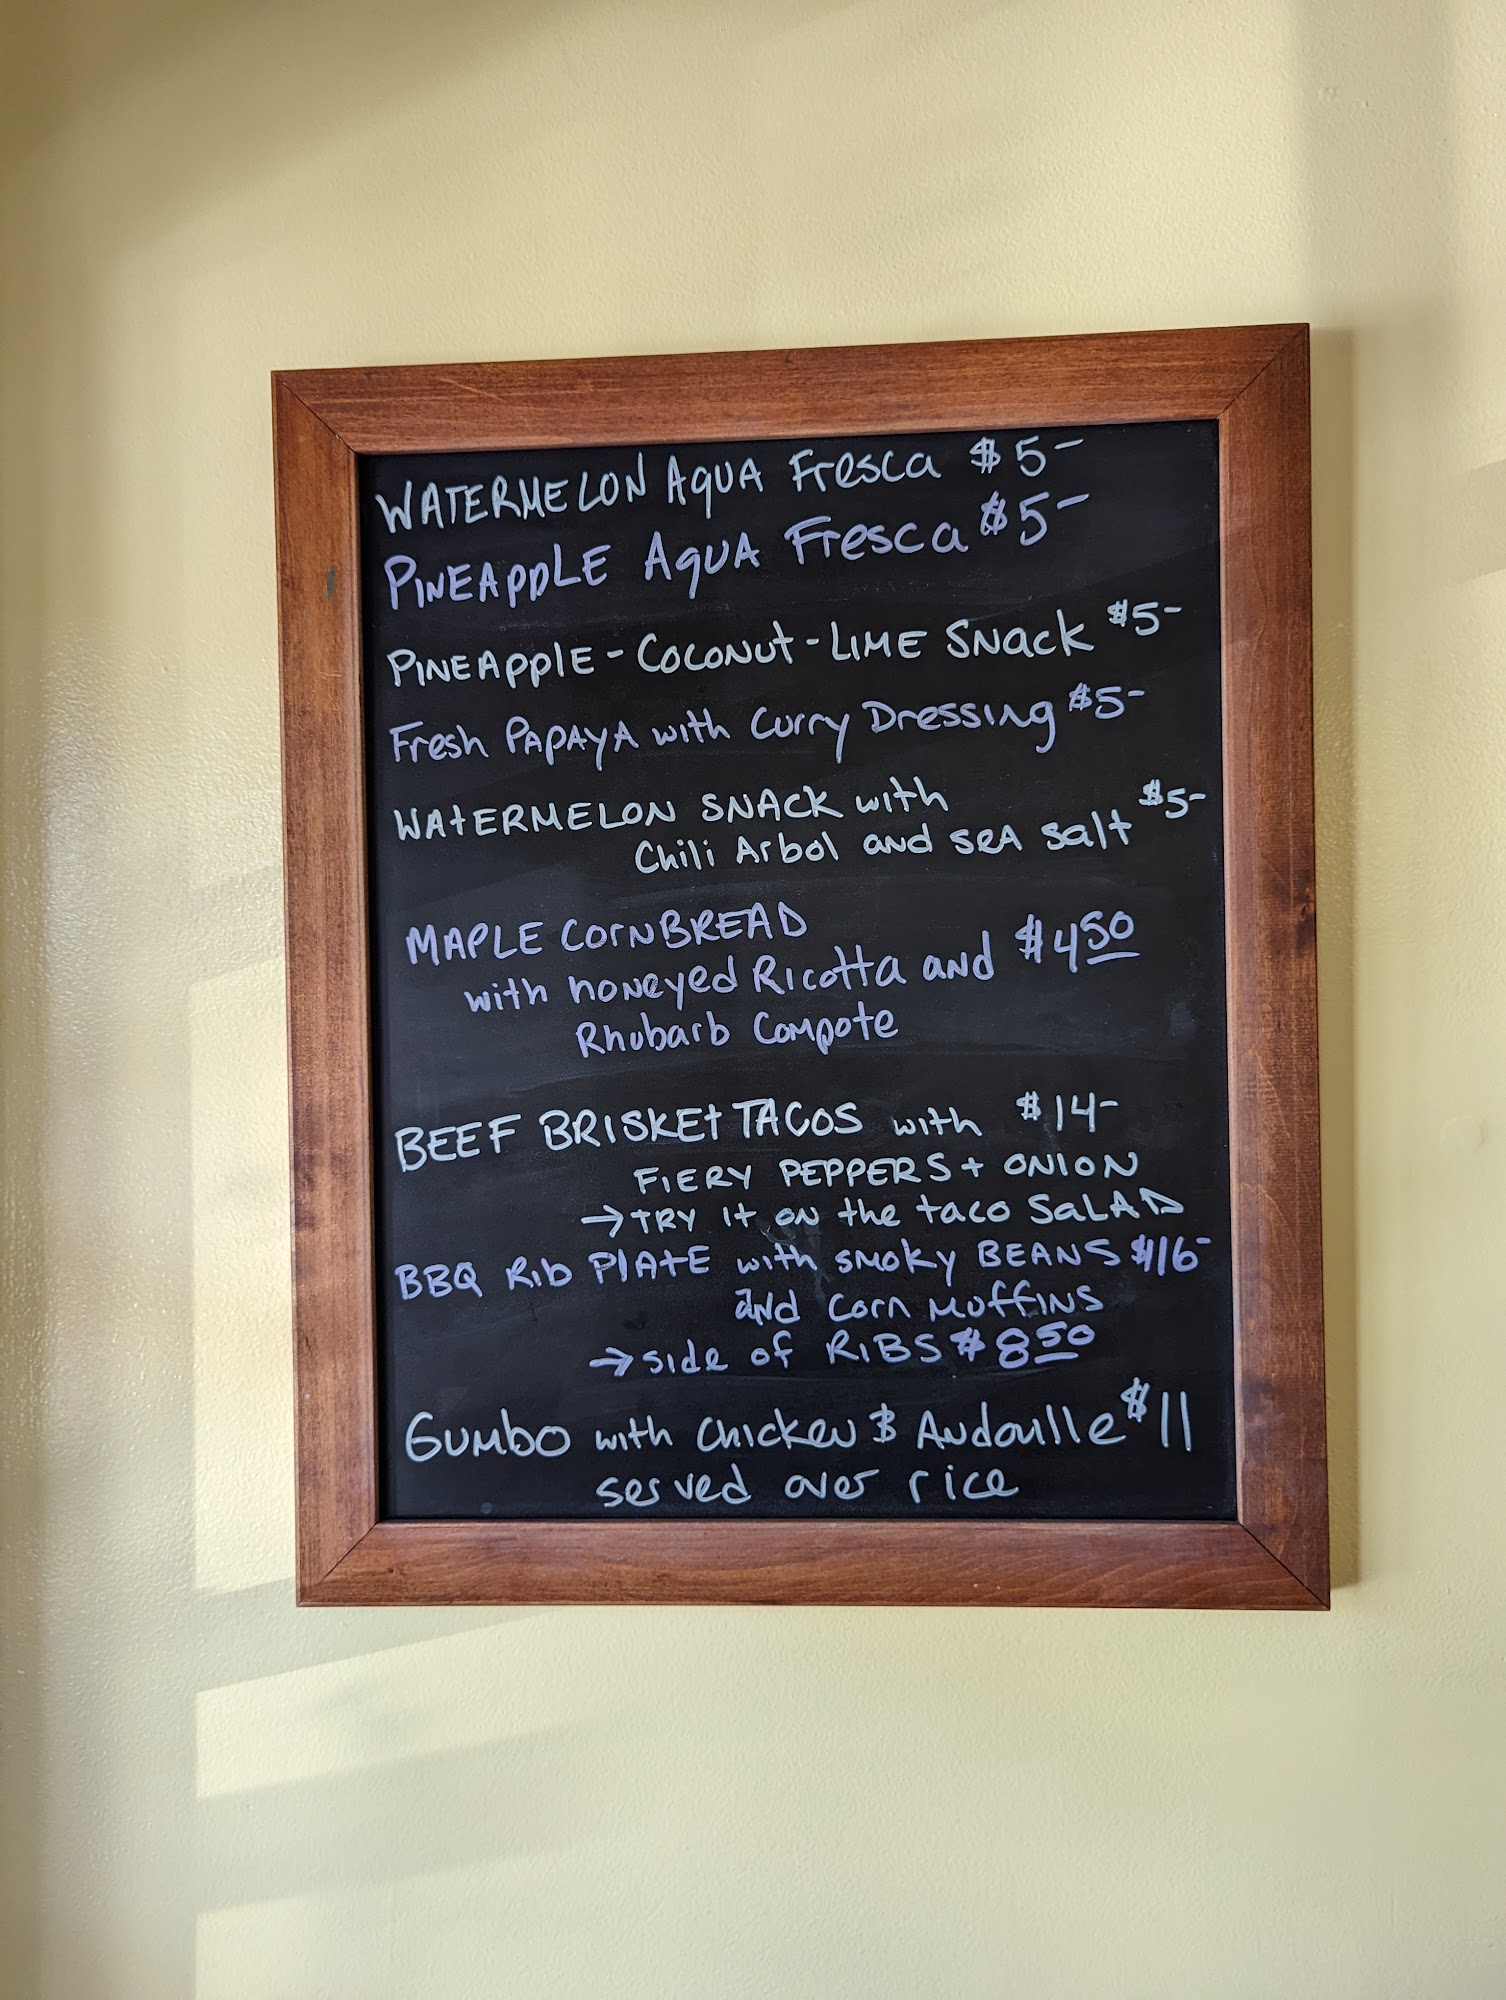 WATERMELON AQUA Fresca $5-
PINEAPPLE AQUA Fresca $5-
PINEApple-COCONUT-LIME SNACK $5-
Fresh PAPAYA with Curry Dressing $5-
WATERMELON SNACK with
Chili Arbol and SEA Salt $5-
MAPLE CORNBREAD
with honeyed Ricotta and $4.50
Rhubarb Compote
BEEF BRISKET TACOS with $14-
FIERY PEPPERS + ONION
→TRY It ON the taco SALAD
BBQ Rib PLATE with SMOKY BEANS $16-
and Corn MUFFINS
→side of RIBS $8.50
GUMBO with Chicken & Andouille $11
served over rice